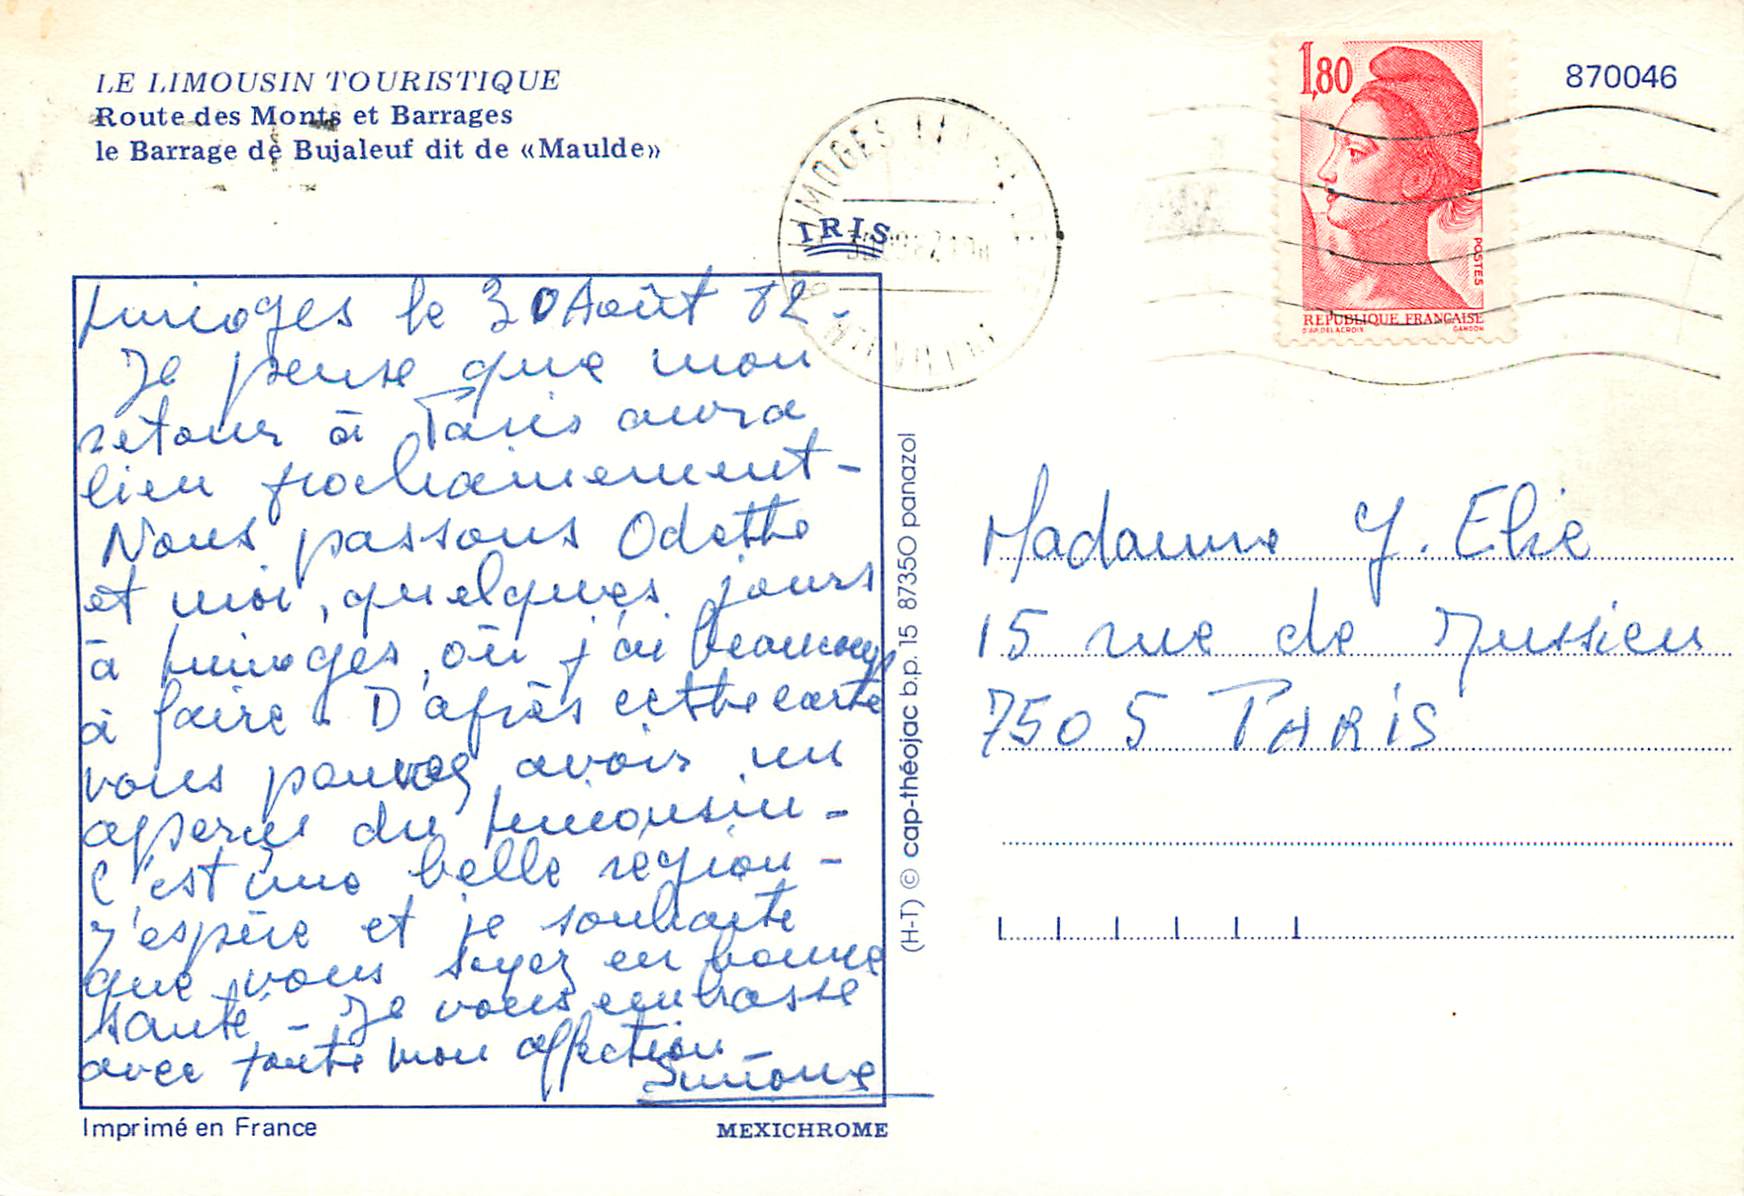 LE LIMOUSIN TOURISTIQUE
Route des Monts et Barrages
le Barrage de Bujaleuf dit de «Maulde»
IRIS
LIMOGES
1,80
POSTES
REPUBLIQUE FRANÇAISE
D'AP. DELACROIX GANDON
870046
Limoges le 30 Août 82 -
Je pense que mon
retour à Paris aura
lieu prochainement -
Nous passons Odette
et moi, quelques jours
à Limoges, où j'ai beaucoup
à faire. D'après cette carte
vous pouvez avoir un
aperçu du Limousin -
C'est une belle région -
J'espère et je souhaite
que vous soyez en bonne
santé - Je vous embrasse
avec toute mon affection -
Simone
Imprimé en France
MEXICHROME
(H-T) © cap-théojac b.p. 15 87350 panazol
Madame Y. Elie
15 rue de Jussieu
7505 PARIS